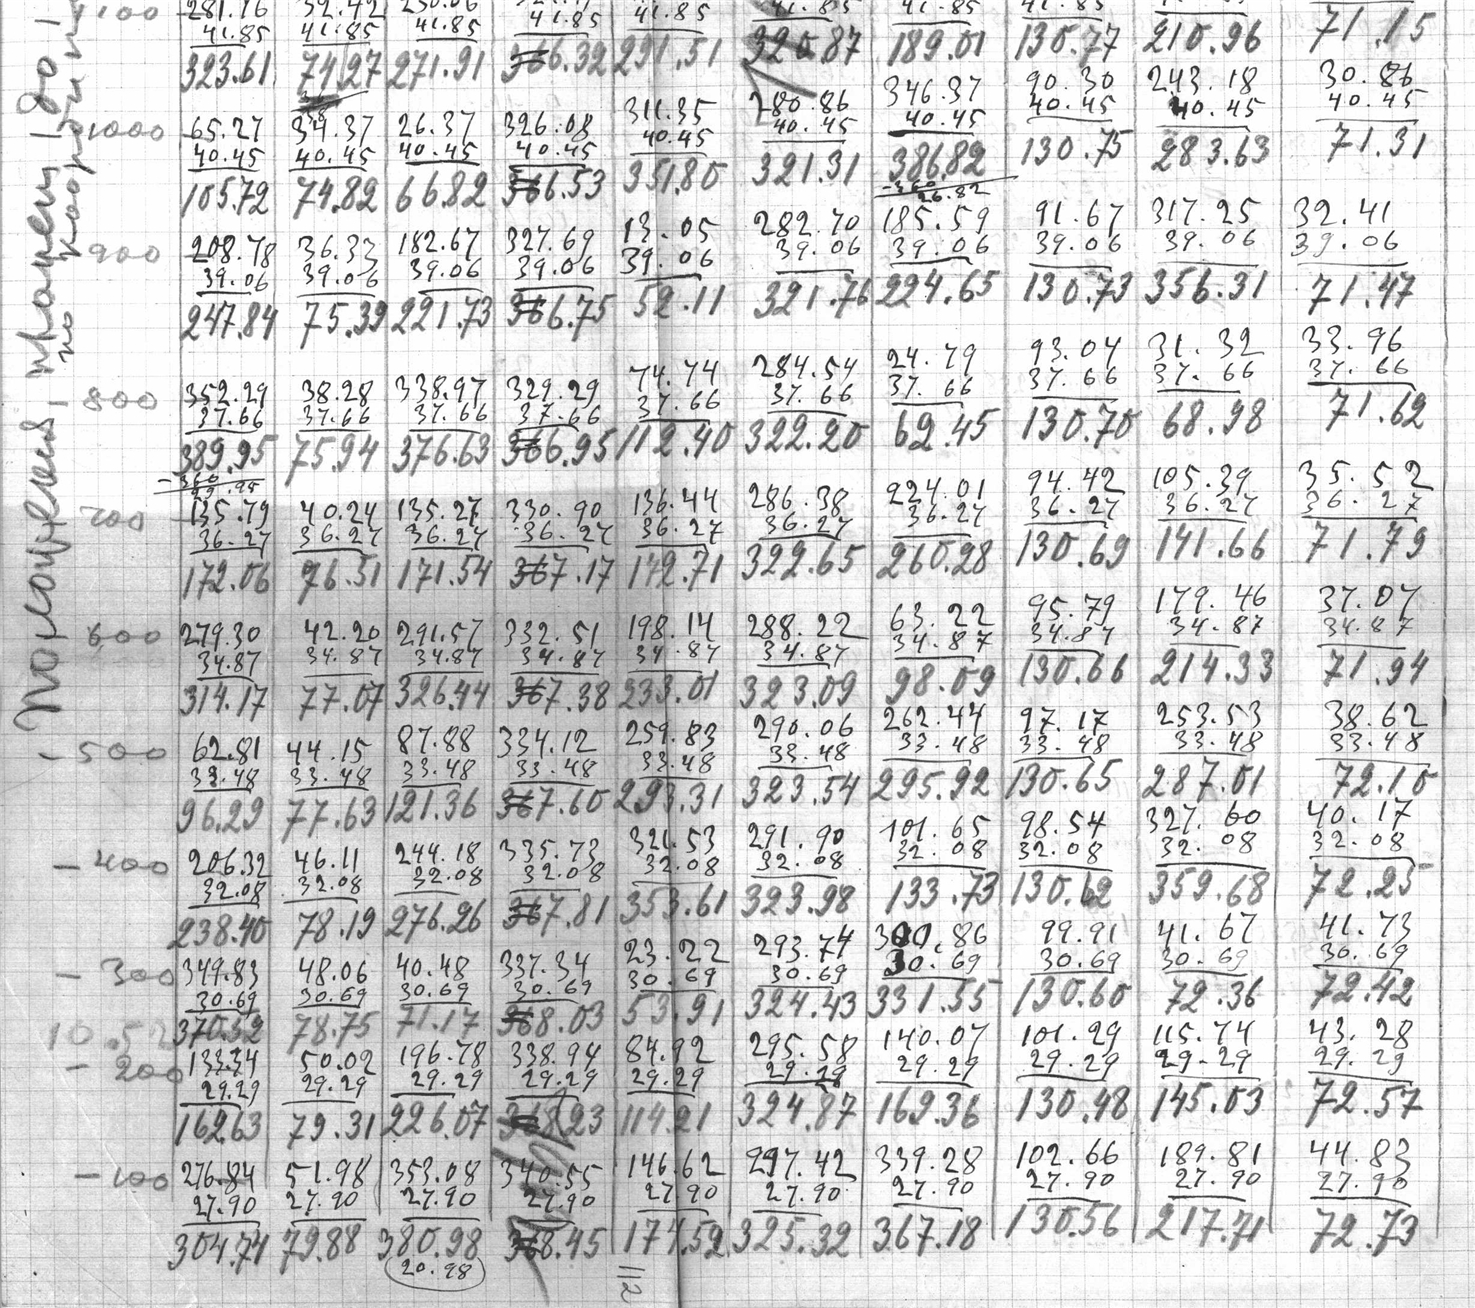 1100 281.76 32.42 41.85 41.85 41.85
41.85 41.85 41.85 41.85 41.85
323.61 74.27 271.91 366.32 291.51 320.87 189.01 130.77 210.96 71.15
1000 65.27 34.37 26.37 326.08 311.35 280.86 346.37 90.30 243.18 30.86
40.45 40.45 40.45 40.45 40.45 40.45 40.45 40.45 40.45 40.45
105.72 74.82 66.82 366.53 351.80 321.31 386.82 130.75 283.63 71.31
-360
26.82
900 208.78 36.33 182.67 327.69 13.05 282.70 185.59 91.67 317.25 32.41
39.06 39.06 39.06 39.06 39.06 39.06 39.06 39.06 39.06 39.06
247.84 75.39 221.73 366.75 52.11 321.76 224.65 130.73 356.31 71.47
800 352.29 38.28 338.97 329.29 74.74 284.54 24.79 93.04 31.32 33.96
37.66 37.66 37.66 37.66 37.66 37.66 37.66 37.66 37.66 37.66
389.95 75.94 376.63 366.95 112.40 322.20 62.45 130.70 68.98 71.62
-360
29.95
700 135.79 40.24 135.27 330.90 136.44 286.38 224.01 94.42 105.39 35.52
36.27 36.27 36.27 36.27 36.27 36.27 36.27 36.27 36.27 36.27
172.06 76.51 171.54 367.17 172.71 322.65 260.28 130.69 141.66 71.79
600 279.30 42.20 291.57 332.51 198.14 288.22 63.22 95.79 179.46 37.07
34.87 34.87 34.87 34.87 34.87 34.87 34.87 34.87 34.87 34.87
314.17 77.07 326.44 367.38 233.01 323.09 98.09 130.66 214.33 71.94
- 500 62.81 44.15 87.88 334.12 259.83 290.06 262.44 97.17 253.53 38.62
33.48 33.48 33.48 33.48 33.48 33.48 33.48 33.48 33.48 33.48
96.29 77.63 121.36 367.60 293.31 323.54 295.92 130.65 287.01 72.10
- 400 206.32 46.11 244.18 335.73 321.53 291.90 101.65 98.54 327.60 40.17
32.08 32.08 32.08 32.08 32.08 32.08 32.08 32.08 32.08 32.08
238.40 78.19 276.26 367.81 353.61 323.98 133.73 130.62 359.68 72.25
- 300 349.83 48.06 40.48 337.34 23.22 293.74 300.86 99.91 41.67 41.73
30.69 30.69 30.69 30.69 30.69 30.69 30.69 30.69 30.69 30.69
10.52 370.52 78.75 71.17 368.03 53.91 324.43 331.55 130.60 72.36 72.42
- 200 133.34 50.02 196.78 338.94 84.92 295.58 140.07 101.29 115.74 43.28
29.29 29.29 29.29 29.29 29.29 29.29 29.29 29.29 29.29 29.29
162.63 79.31 226.07 368.23 114.21 324.87 169.36 130.48 145.03 72.57
- 100 276.84 51.98 353.08 340.55 146.62 297.42 339.28 102.66 189.81 44.83
27.90 27.90 27.90 27.90 27.90 27.90 27.90 27.90 27.90 27.90
304.74 79.88 380.98 368.45 174.52 325.32 367.18 130.56 217.71 72.73
20.98
112